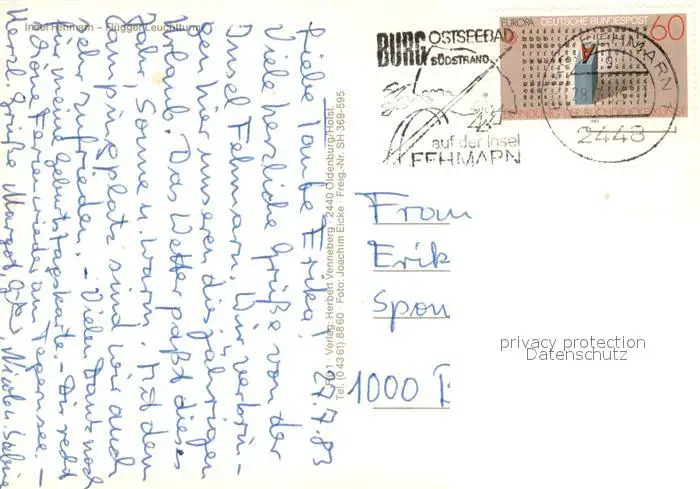 Insel Fehmarn – Flügger Leuchtturm
27.7.83
Liebe Tante Erika!
Viele herzliche Grüße von der
Insel Fehmarn. Wir verbrin-
gen hier unseren diesjährigen
Urlaub. Das Wetter paßt dieses
Jahr, Sonne u. warm. Mit dem
Campingplatz sind wir auch
sehr zufrieden. – Vielen Dank noch
für meine Geburtstagskarte. – Dir recht
schöne Ferien wieder am Tegernsee. –
Herzl. Grüße Margot, Nicole u. Sabine
Verlag: Herbert Venneberg · 2440 Oldenburg/Holst.
Tel. (0 43 61) 88 60 · Foto: Joachim Eicke · Freig.-Nr. SH 369-595
BURG OSTSEEBAD
SÜDSTRAND
auf der Insel
FEHMARN
EUROPA DEUTSCHE BUNDESPOST 60
FEHMARN 1
2448
Frau
Erik
Spon
1000
privacy protection
Datenschutz